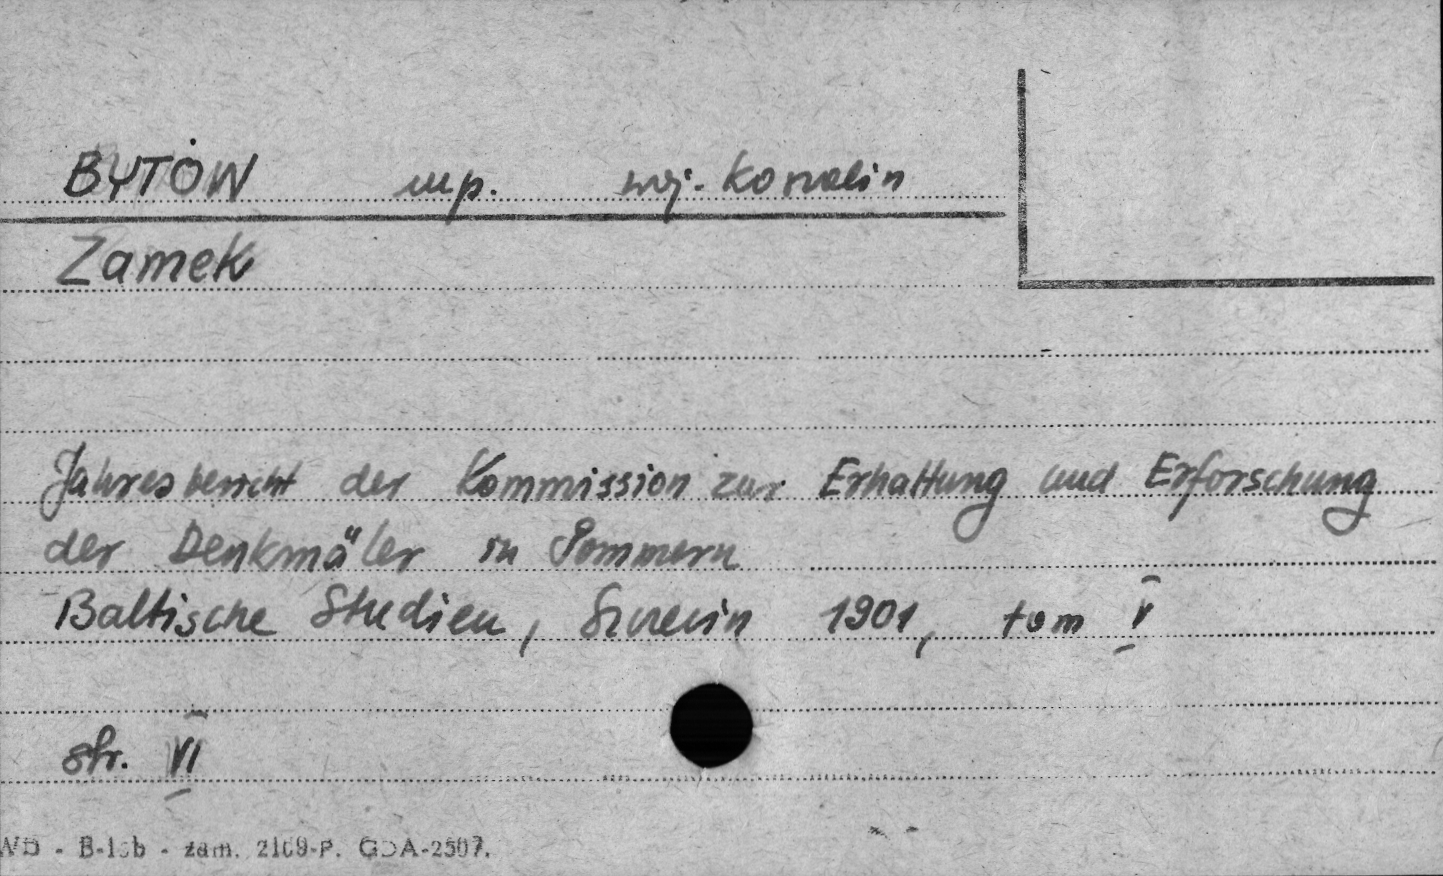 BYTÓW mp. woj. Koszalin
Zamek
Jahresbericht der Kommission zur Erhaltung und Erforschung
der Denkmäler in Pommern
Baltische Studien, Szczecin 1901, tom V
str. VI
WD - B-16b - zam. 2109-P. GDA-2507.